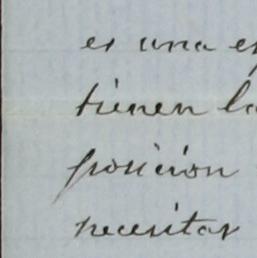 es una es
tienen la
posicion
necesitar